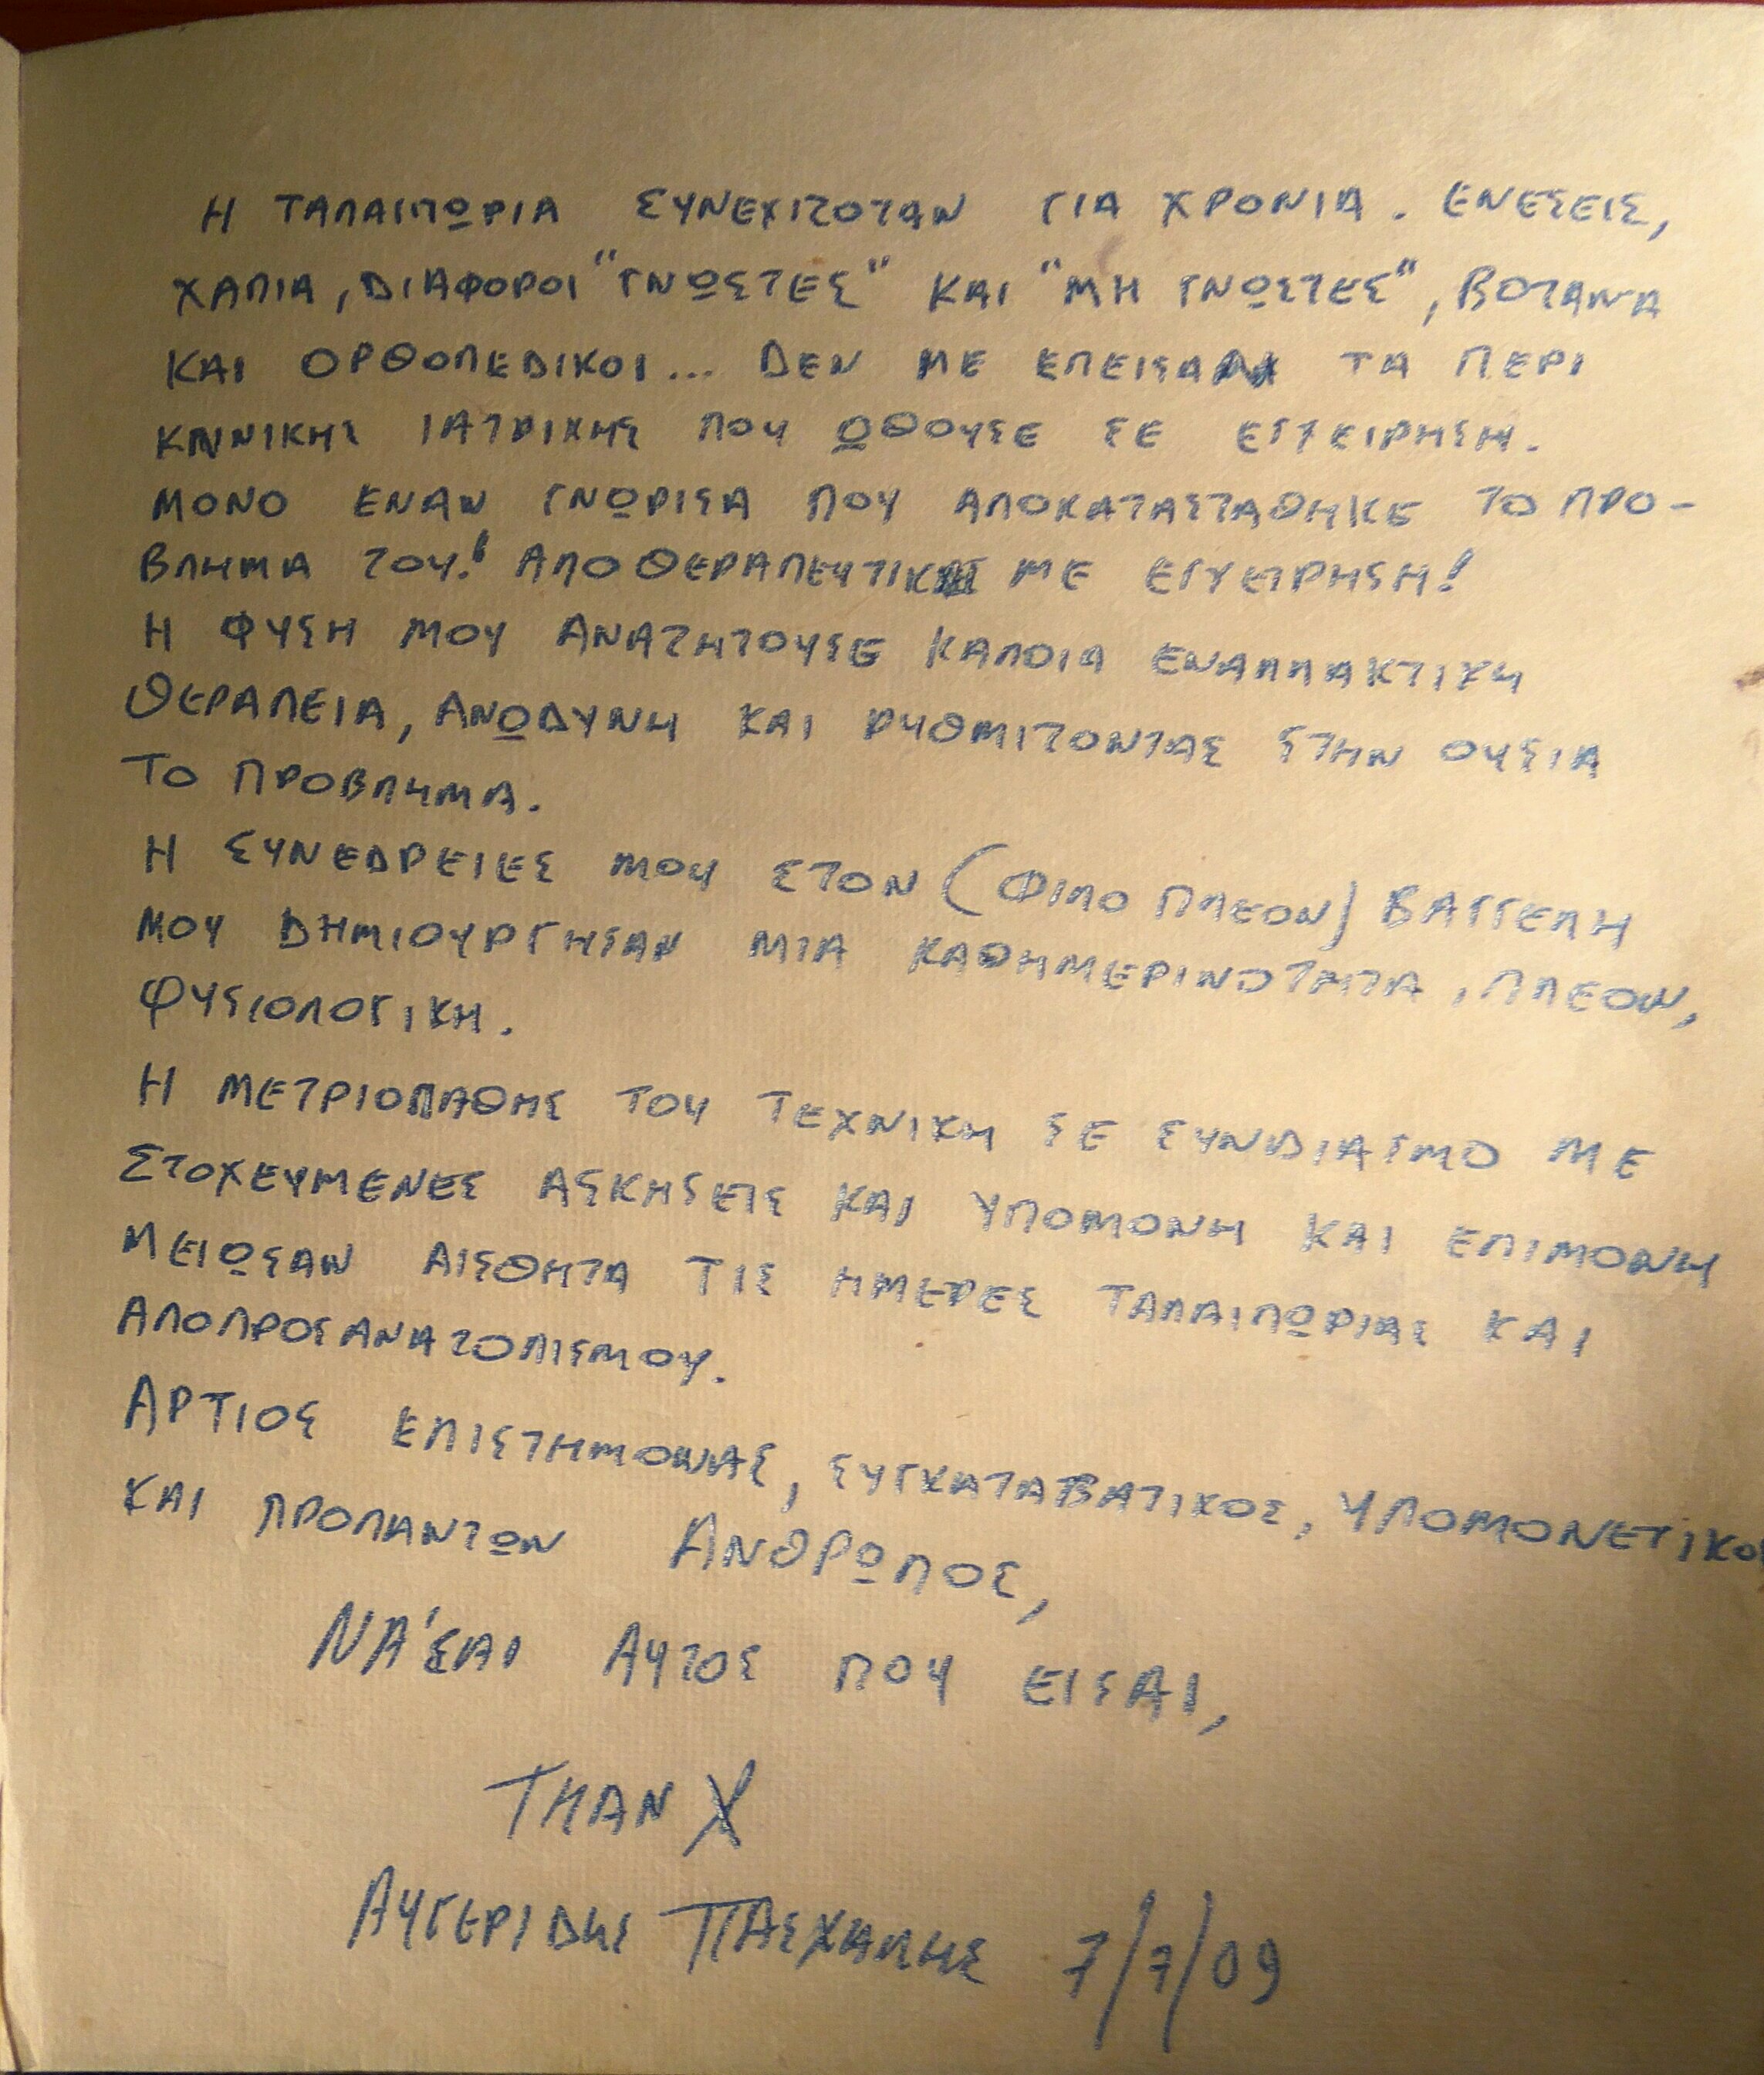 Η ΤΑΛΑΙΠΩΡΙΑ ΣΥΝΕΧΙΖΟΤΑΝ ΓΙΑ ΧΡΟΝΙΑ. ΕΝΕΣΕΙΣ,
ΧΑΠΙΑ, ΔΙΑΦΟΡΟΙ "ΓΝΩΣΤΕΣ" ΚΑΙ "ΜΗ ΓΝΩΣΤΕΣ", ΒΟΤΑΝΑ
ΚΑΙ ΟΡΘΟΠΕΔΙΚΟΙ... ΔΕΝ ΜΕ ΕΠΕΙΣΑΝ ΤΑ ΠΕΡΙ
ΚΛΙΝΙΚΗΣ ΙΑΤΡΙΚΗΣ ΠΟΥ ΩΘΟΥΣΕ ΣΕ ΕΓΧΕΙΡΗΣΗ.
ΜΟΝΟ ΕΝΑΝ ΓΝΩΡΙΣΑ ΠΟΥ ΑΠΟΚΑΤΑΣΤΑΘΗΚΕ ΤΟ ΠΡΟ-
ΒΛΗΜΑ ΤΟΥ! ΑΠΟΘΕΡΑΠΕΥΤΙΚΕ ΜΕ ΕΓΧΕΙΡΗΣΗ!
Η ΦΥΣΗ ΜΟΥ ΑΝΑΖΗΤΟΥΣΕ ΚΑΠΟΙΑ ΕΝΑΛΛΑΚΤΙΚΗ
ΘΕΡΑΠΕΙΑ, ΑΝΩΔΥΝΗ ΚΑΙ ΡΥΘΜΙΖΟΝΤΑΣ ΣΤΗΝ ΟΥΣΙΑ
ΤΟ ΠΡΟΒΛΗΜΑ.
Η ΣΥΝΕΔΡΕΙΕΣ ΜΟΥ ΣΤΟΝ (ΦΙΛΟ ΠΛΕΟΝ) ΒΑΓΓΕΛΗ
ΜΟΥ ΔΗΜΙΟΥΡΓΗΣΑΝ ΜΙΑ ΚΑΘΗΜΕΡΙΝΟΤΗΤΑ, ΠΛΕΟΝ,
ΦΥΣΙΟΛΟΓΙΚΗ.
Η ΜΕΤΡΙΟΠΑΘΗΣ ΤΟΥ ΤΕΧΝΙΚΗ ΣΕ ΣΥΝΔΙΑΣΜΟ ΜΕ
ΣΤΟΧΕΥΜΕΝΕΣ ΑΣΚΗΣΕΙΣ ΚΑΙ ΥΠΟΜΟΝΗ ΚΑΙ ΕΠΙΜΟΝΗ
ΜΕΙΩΣΑΝ ΑΙΣΘΗΤΑ ΤΙΣ ΗΜΕΡΕΣ ΤΑΛΑΙΠΩΡΙΑΣ ΚΑΙ
ΑΠΟΠΡΟΣΑΝΑΤΟΛΙΣΜΟΥ.
ΑΡΤΙΟΣ ΕΠΙΣΤΗΜΟΝΑΣ, ΣΥΓΚΑΤΑΒΑΤΙΚΟΣ, ΥΠΟΜΟΝΕΤΙΚΟΣ
ΚΑΙ ΠΡΟΠΑΝΤΩΝ ΑΝΘΡΩΠΟΣ,
ΝΑ'ΣΑΙ ΑΥΤΟΣ ΠΟΥ ΕΙΣΑΙ,
THANX
ΑΥΓΕΡΙΔΗΣ ΠΑΣΧΑΛΗΣ 7/7/09